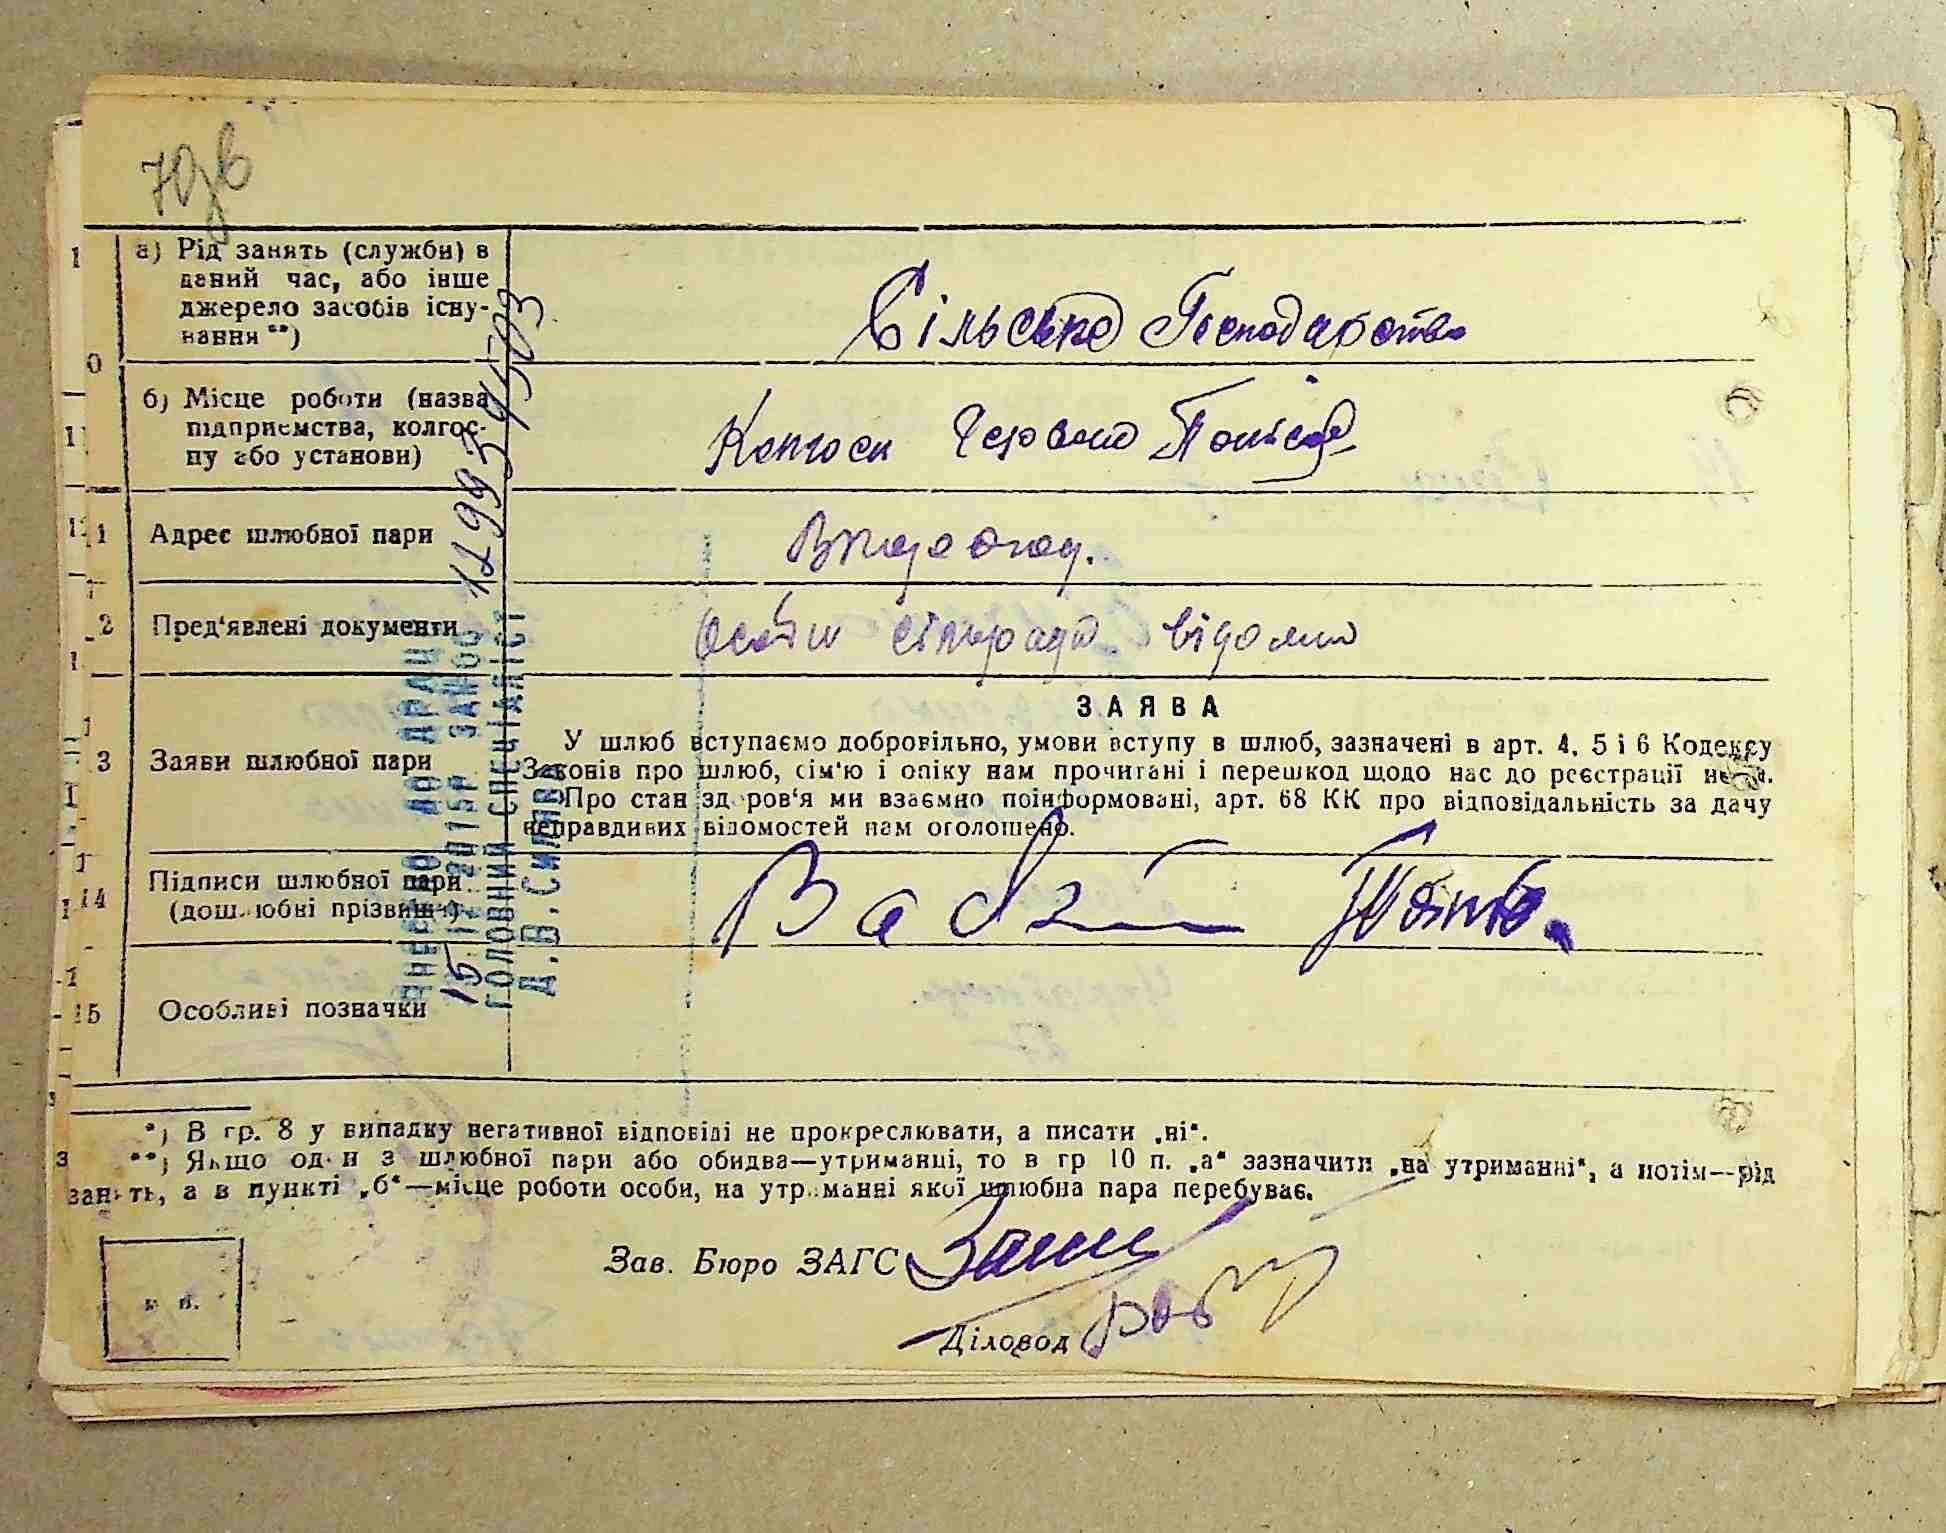 70зв
а) Рід занять (служби) в
даний час, або інше
джерело засобів існу-
вання **)
Сільське Господарство
б) Місце роботи (назва
підприємства, колгос-
пу або установи)
Колгосп Червоне
11 Адрес шлюбної пари
12 Пред'явлені документи
Особи сільраді відомі
ЗАЯВА
13 Заяви шлюбної пари
У шлюб вступаємо добровільно, умови вступу в шлюб, зазначені в арт. 4, 5 і 6 Кодексу
Законів про шлюб, сім'ю і опіку нам прочитані і перешкод щодо нас до реєстрації нема.
Про стан здоров'я ми взаємно поінформовані, арт. 68 КК про відповідальність за дачу
неправдивих відомостей нам оголошено.
14 Підписи шлюбної пари
(дошлюбні прізвища)
15 Особливі позначки
ВНЕСЕНО ДО ДРАЦ
15 2015р. ЗА №00 1299354503
ГОЛОВНИЙ СПЕЦІАЛІСТ
Д.В.СИЛІВА
*) В гр. 8 у випадку негативної відповіді не прокреслювати, а писати „ні“.
**) Якщо один з шлюбної пари або обидва—утриманці, то в гр 10 п. „а“ зазначити „на утриманні“, а потім—рід
занять, а в пункті „б“—місце роботи особи, на утриманні якої шлюбна пара перебуває.
Зав. Бюро ЗАГС
Діловод
м п.